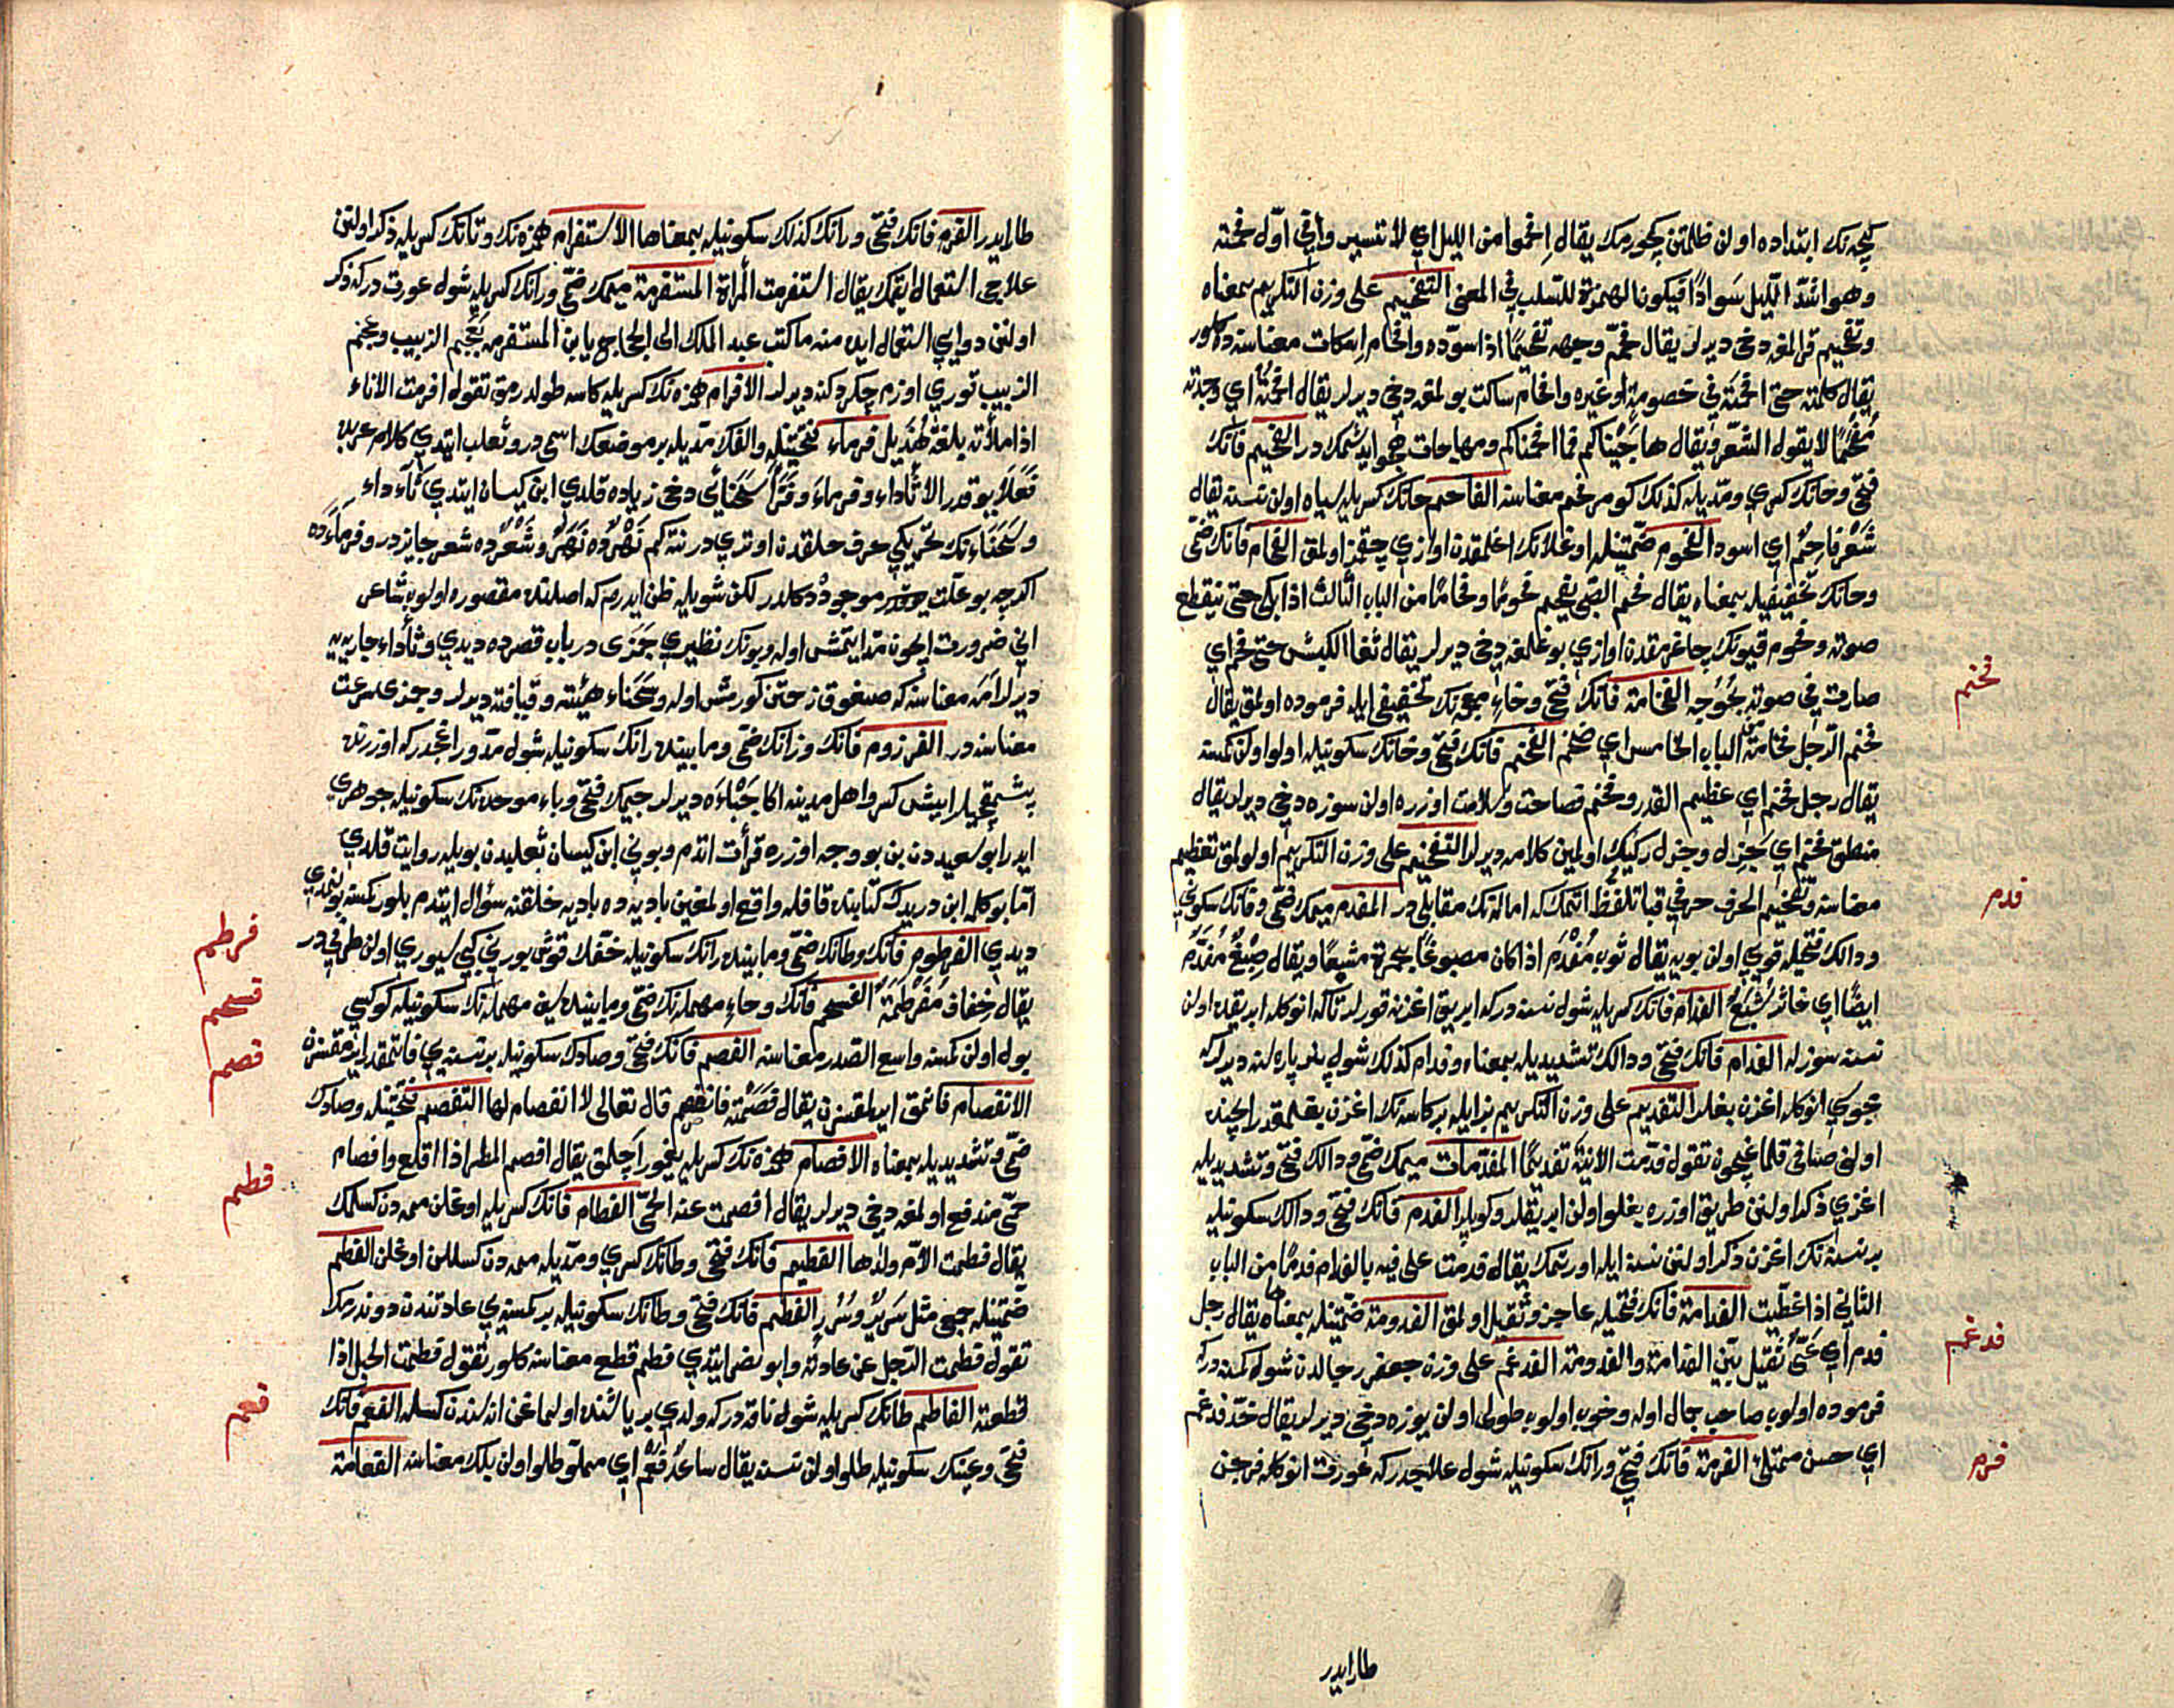 كيجه نك ابتداده اولن ظلمتن كچورمك يقال افحموا من الليل اي لا تسيروا في اول فحمته
وهو اشد الليل سوادا فيكون الهمزة للسلب في المعنى التفحيم على وزن التكريم بمعناه
وتفحيم قرالمغه دخي ديرلر يقال فحم وجهه تفحيما اذا سوده وافحام اسكات معناسنه ده كلور
يقال كلمته حتى افحمته في خصومة او غيره وافحام ساكت بولمغه دخي ديرلر يقال افحمته اي وجدته
مفحما لا يقول الشعر ويقال هاجيناكم فما افحمناكم ومهاجات هجو ايدشمكدر الفحيم فانك
فتحي وحانك كسري ومديله كذلك كومر فحم معناسنه الفاحم حانك كسريله سياه اولن نسنه يقال
شعر فاحم اي اسود الفحوم ضمتينله اوغلانك اغلمقدن اوازي چقمز اولمق الفحام فانك ضمي
وحانك تخفيفيله بمعناه يقال فحم الصبي يفحم فحوما وفحاما من الباب الثالث اذا بكى حتى ينقطع
صوته وفحوم قيونك چاغرمقدن اوازي بوغلمغه دخي ديرلر يقال ثغا الكبش حتى فحم اي
صارت في صوته بحوحه الفخامة فانك فتحي وخاء معجمه نك تخفيفي ايله فرموده اولمق يقال
فخم الرجل فخامة من الباب الخامس اي ضخم الفخم فانك فتحي وخانك سكونيله اولو اولن كمسنه
يقال رجل فخم اي عظيم القدر وفخم فصاحت وسلامت اوزره اولن سوزه دخي ديرلر يقال
منطق فخم اي جزل وجزل ركيك اولمين كلامه ديرلر التفخيم على وزن التكريم اولولمق تعظيم
معناسنه وتفخيم الحرف حرفي قبا تلفظ اتمكدركه اماله نك مقابليدر المفدم ميمك ضمي وفانك سكوني
ودالك فتحيله قويي اولن بويه يقال ثوب مفدم اذا كان مصبوغا بحمرة مشبعا ويقال صبغ مفدم
ايضا اي خاثر مشبع الفدام فانك كسريله شول نسنه دركه ابريق اغزنه قورلر تاكه انوكله ابريقده اولن
نسنه سوزله الفدام فانك فتحي ودالك تشديديله بمعناه وفدام كذلك شول بلر پاره لنه ديرلركه
مجوسي انوكله اغزن بغلر التفديم على وزن التكريم بزايله بر كاسه نك اغزن بغلمقدر ايچنده
اولني صافي قلمغيچون تقول فدمت الانية تفديما المفدمات ميمك ضمي ودالك فتحي وتشديديله
اغزي ذكر اولنن طريق اوزره بغلو اولن ابريقلر وكوپلر الفدم فانك فتحي ودالك سكونيله
بر نسنه نك اغزن ذكر اولنن نسنه ايله اورتمك يقال فدمت على فيه بالفدام فدما من الباب
الثاني اذا غطيت الفدامة فانك فتحيله عاجز وثقيل اولمق الفدومة ضمتينله بمعناها يقال رجل
فدم اي عي ثقيل بين الفدامة والفدومة الفدغم على وزن جعفر رجالدن شول كمسنه دركه
فرموده اولوب صاحب جمال اوله وخوب اولوب طولي اولن يوزه دخي ديرلر يقال خد فدغم
اي حسن ممتلئ الفرمة فانك فتحي ورانك سكونيله شول علاجدركه عورت انوكله فرجن
طار ايدر
فخم
فدم
فدغم
فرم
طار ايدر الفرم فانك فتحي ورانك كذلك سكونيله بمعناها الاستفرام همزه نك وتانك كسريله ذكر اولنن
علاجي استعمال ايتمك يقال استفرمت المراة المستفرمة ميمك ضمي ورانك كسريله شول عورت دركه ذكر
اولنن دوايي استعمال ايده منه ما كتب عبد الملك الى الحجاج يا بن المستفرمة بعجم الزبيب وعجم
الزبيب قوري اوزم چكردكنه ديرلر الافرام همزه نك كسريله كاسه طولدرمق تقول افرمت الاناء
اذا ملأته بلغة هذيل فرماء فتحتينله والفك مديله بر موضعك اسمي در وثعلب ايتدي كلام عربده
فعلاء يوقدر الا ثأداء وفرماء وفرا سحنائي دخي زياده قلدي ابن كيسان ايتدي ثأداء
وسحناءنك تحريكي حرف حلقدن اوتريدر نته كم نهرده نهر وشعرده شعر جايزدر وفرماءده
اكرچه بو علت يوقدر موجود دكلدر لكن شويله ظن ايدرم كه اصلنده مقصوره اولوب شاعر
اني ضرورت ايچون مد ايتمش اوله وبونك نظيري جمزى در باب قصرده ديدي وثأداء جاريه يه
ديرلر امة معناسنه كه صغوقاز حتن كورمش اوله وسحناء هيئته وقيافته ديرلر وجمزى سرعت
معناسنه در الفرزوم فانك وزانك ضمي ومابينده رانك سكونيله شول مدور اغجدركه اوزرنده
پشمقجيلر ايش كسر واهل مدينه اكا جبأة ديرلر جيمك فتحي وباء موحده نك سكونيله جوهري
ايدر ابو سعيددن بن بو وجه اوزره قرأت اتدم وبوني ابن كيسان ثعلبدن بويله روايت قلدي
اما بو كلمه ابن دريدك كتابنده قافله واقع اولمغين باديه ده باديه خلقنه سؤال ايتدم بلور كمسنه بولنمدي
ديدي الفرطوم فانك وطانك ضمي ومابينده رانك سكونيله خفك قوش بورني كبي سيوري اولن طرفيدر
يقال خفاف مفرطمة الفسحم فانك وحاء مهمله نك ضمي ومابينده سين مهمله نك سكونيله كوكسي
بول اولن كمسنه واسع الصدر معناسنه الفصم فانك فتحي وصادك سكونيله بر نسنه يي قاتمقدر ايرمقسزن
الانفصام قاتمق ايرلمقسزن يقال فصمته فانفصم قال تعالى لا انفصام لها التفصم فتحتينله وصادك
ضمي وتشديديله بمعناه الافصام همزه نك كسريله يغمور اچلمق يقال افصم المطر اذا اقلع وافصام
حمى مندفع اولمغه دخي ديرلر يقال افصمت عنه الحمى الفطام فانك كسريله اوغلن ممه دن كسلمك
يقال فطمت الام ولدها الفطيم فانك فتحي وطانك كسري ومديله ممه دن كسلن اوغلن الفطم
ضمتينله جمع مثل سرير وسرر الفطم فانك فتحي وطانك سكونيله بر كمسنه يي عادتندن دوندرمك
تقول فطمت الرجل عن عادته وابو نصر ايتدي فطم قطع معناسنه كلور تقول فطمت الحبل اذا
قطعته الفاطم طانك كسريله شول ناقه دركه ولدي بر ياشنده اولماغن اناسندن كسله الفعم فانك
فتحي وعينك سكونيله طلو اولن نسنه يقال ساعد فعم اي ممتلؤ طلو اولن بلك معناسنه الفعامة
فرطم
فسحم
فصم
فطم
فعم